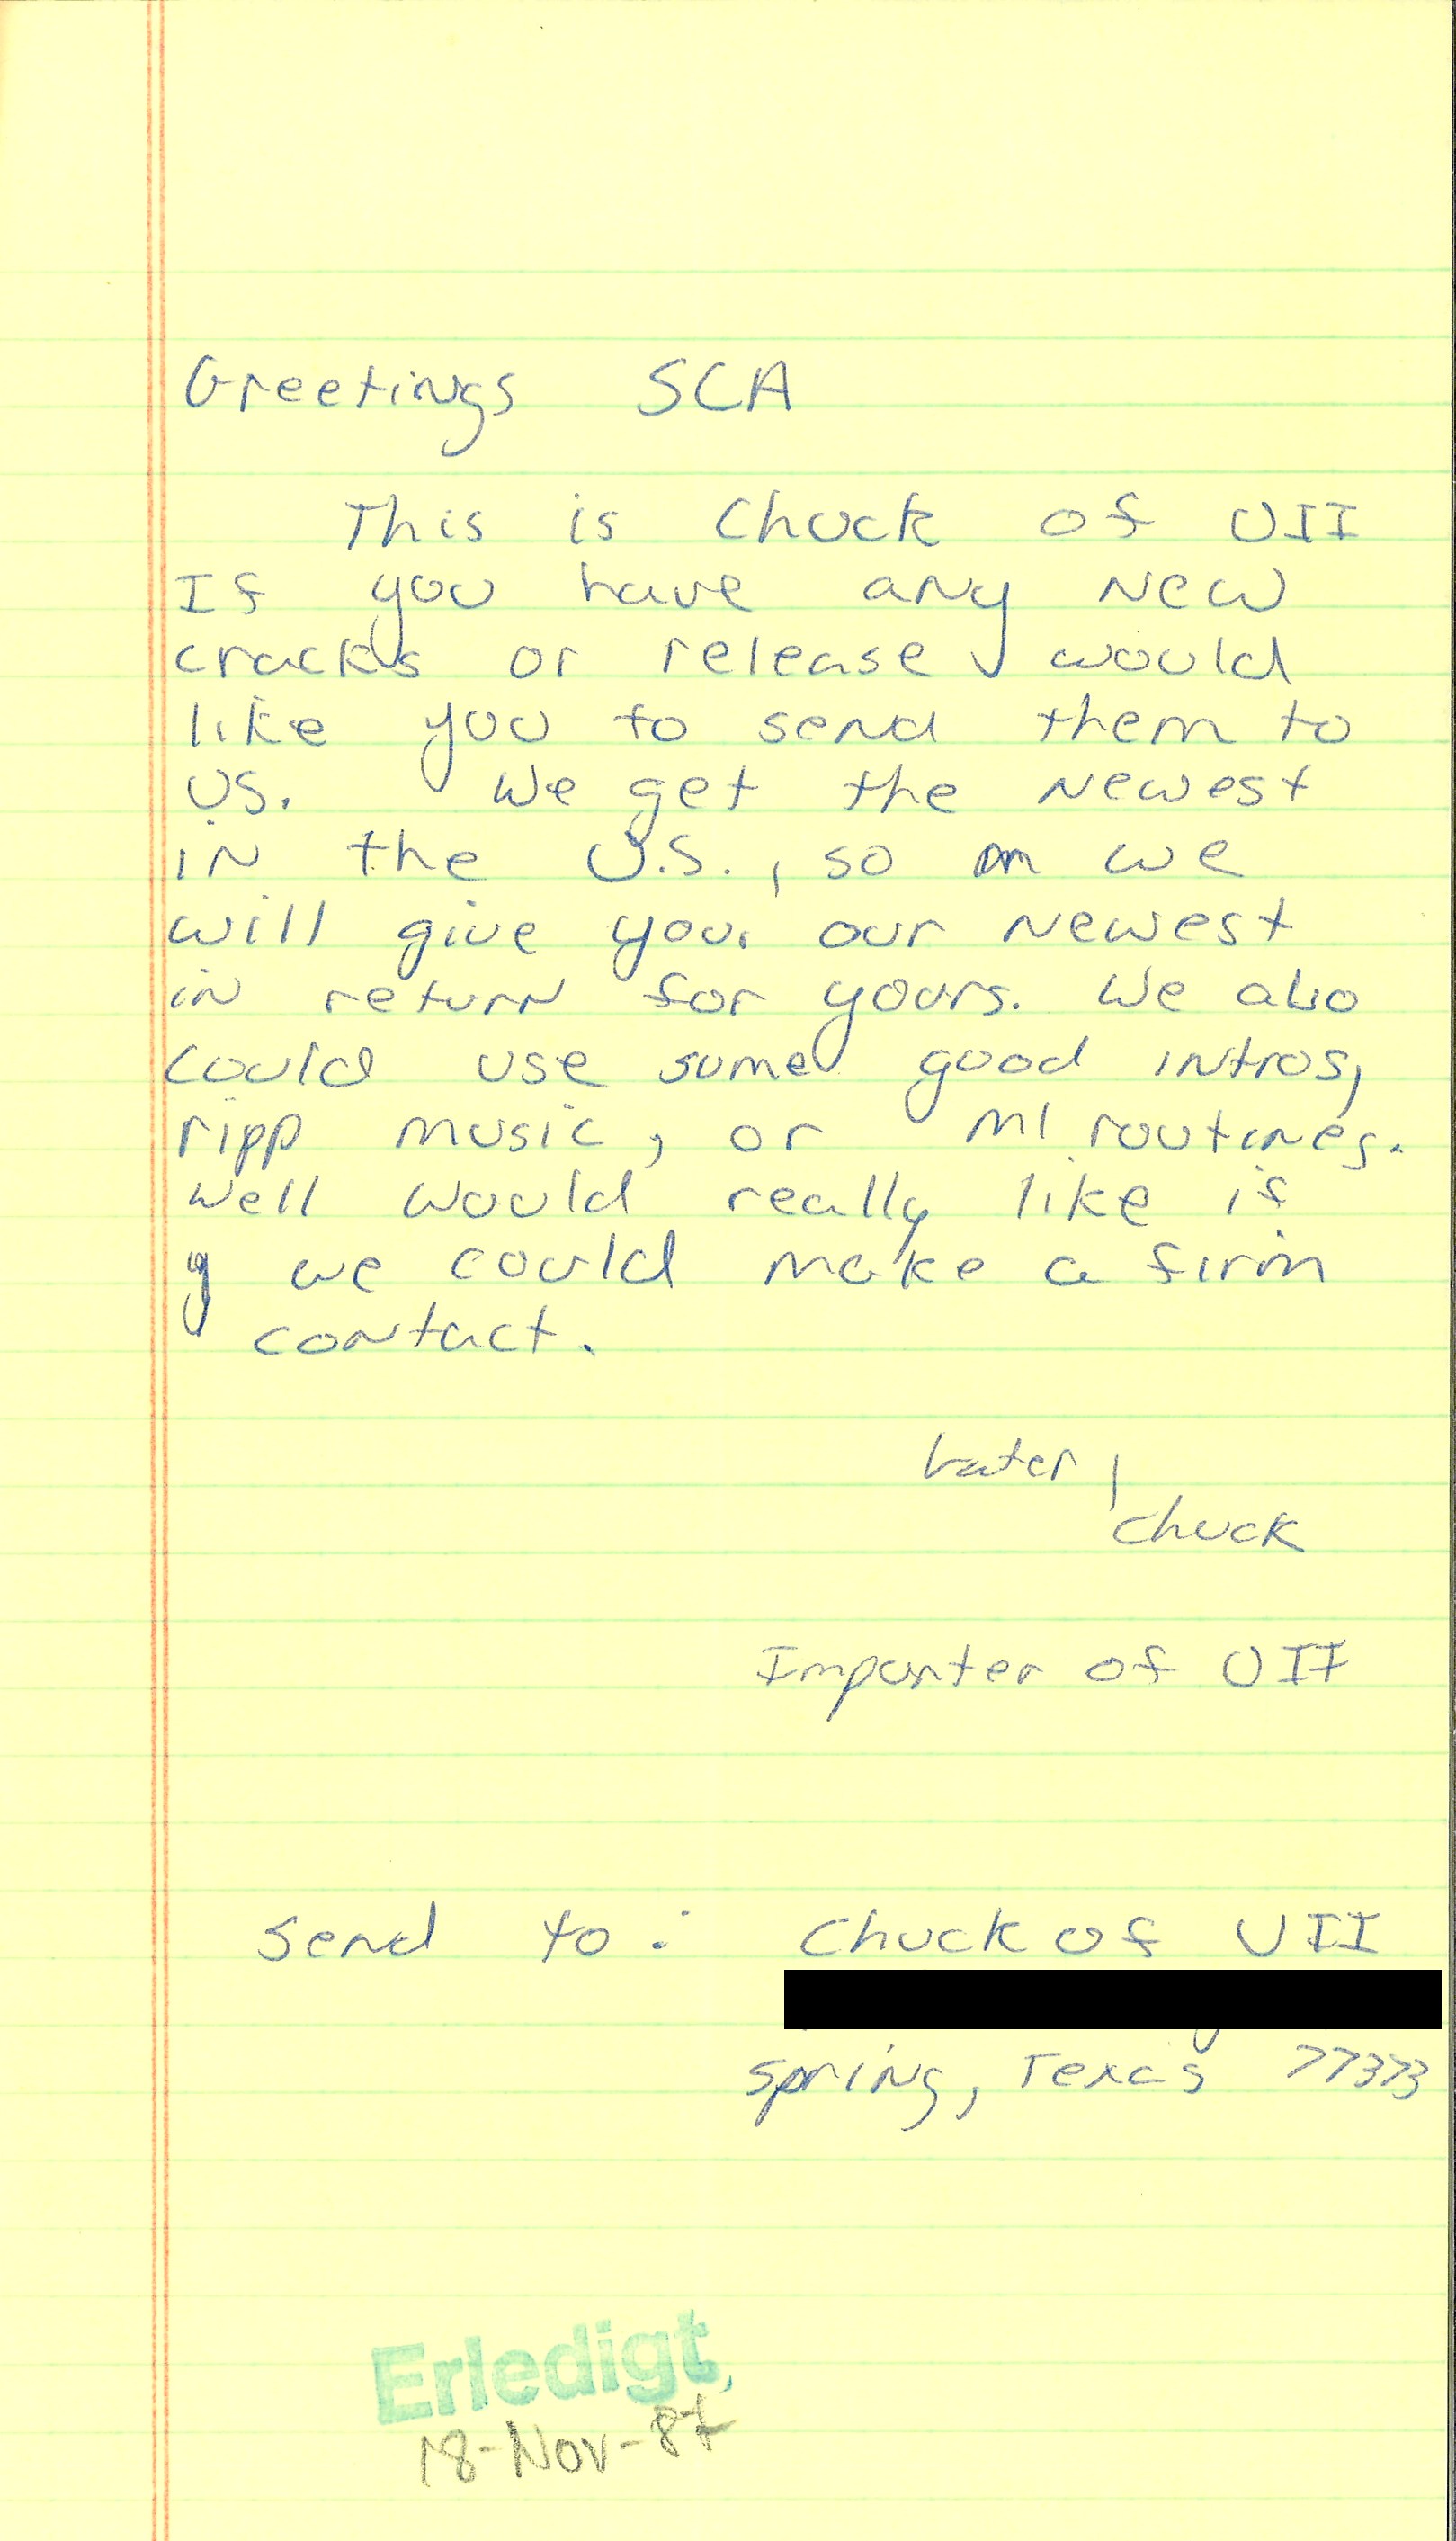 Greetings SCA
This is Chuck of UII
If you have any new
cracks or release would
like you to send them to
us. We get the newest
in the U.S., so we
will give you our newest
in return for yours. We also
could use some good intros,
ripp music, or ml routines.
Well would really like if
we could make a firm
contact.
Later,
Chuck
Importer of UII
Send to: Chuck of UII
Spring, Texas 77373
Erledigt
18-Nov-87